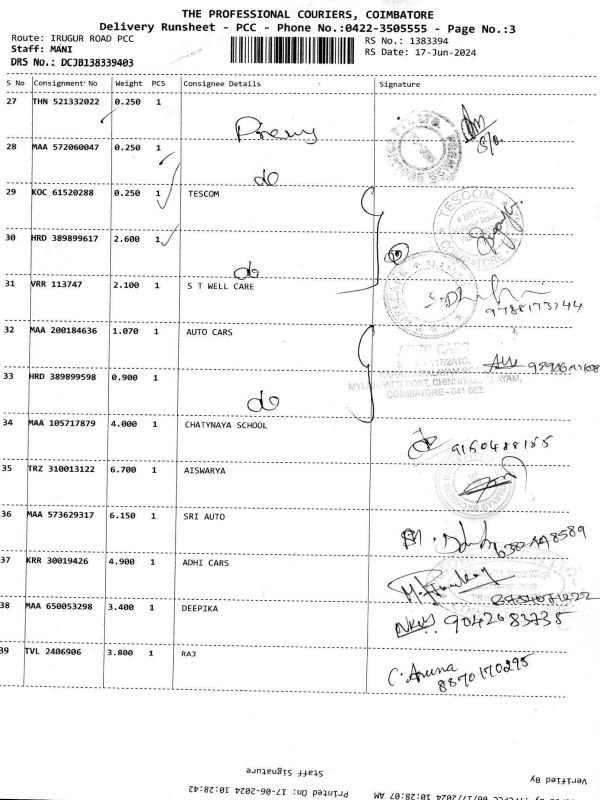 THE PROFESSIONAL COURIERS, COIMBATORE
Delivery Runsheet - PCC - Phone No.:0422-3505555 - Page No.:3
Route: IRUGUR ROAD PCC
RS No.: 1383394
Staff: MANI
RS Date: 17-Jun-2024
DRS No.: DCJB138339403
S No Consignment No Weight PCS Consignee Details Signature
27 THN 521332022 0.250 1
28 MAA 572060047 0.250 1
do
29 KOC 61520288 0.250 1 TESCOM
TESCOM
30 HRD 389899617 2.600 1
do
31 VRR 113747 2.100 1 S T WELL CARE
9788173744
32 MAA 200184636 1.070 1 AUTO CARS
33 HRD 389899598 0.900 1
COIMBATORE - 041 062.
do
34 MAA 105717879 4.000 1 CHATYNAYA SCHOOL
9150488185
35 TRZ 310013122 6.700 1 AISWARYA
36 MAA 573629317 6.150 1 SRI AUTO
37 KRR 30019426 4.900 1 ADHI CARS
38 MAA 650053298 3.400 1 DEEPIKA
9042683735
39 TVL 2406906 3.800 1 RAJ
C. Aruna
8870170295
Staff Signature
Verified By
Printed On: 17-06-2024 10:28:42